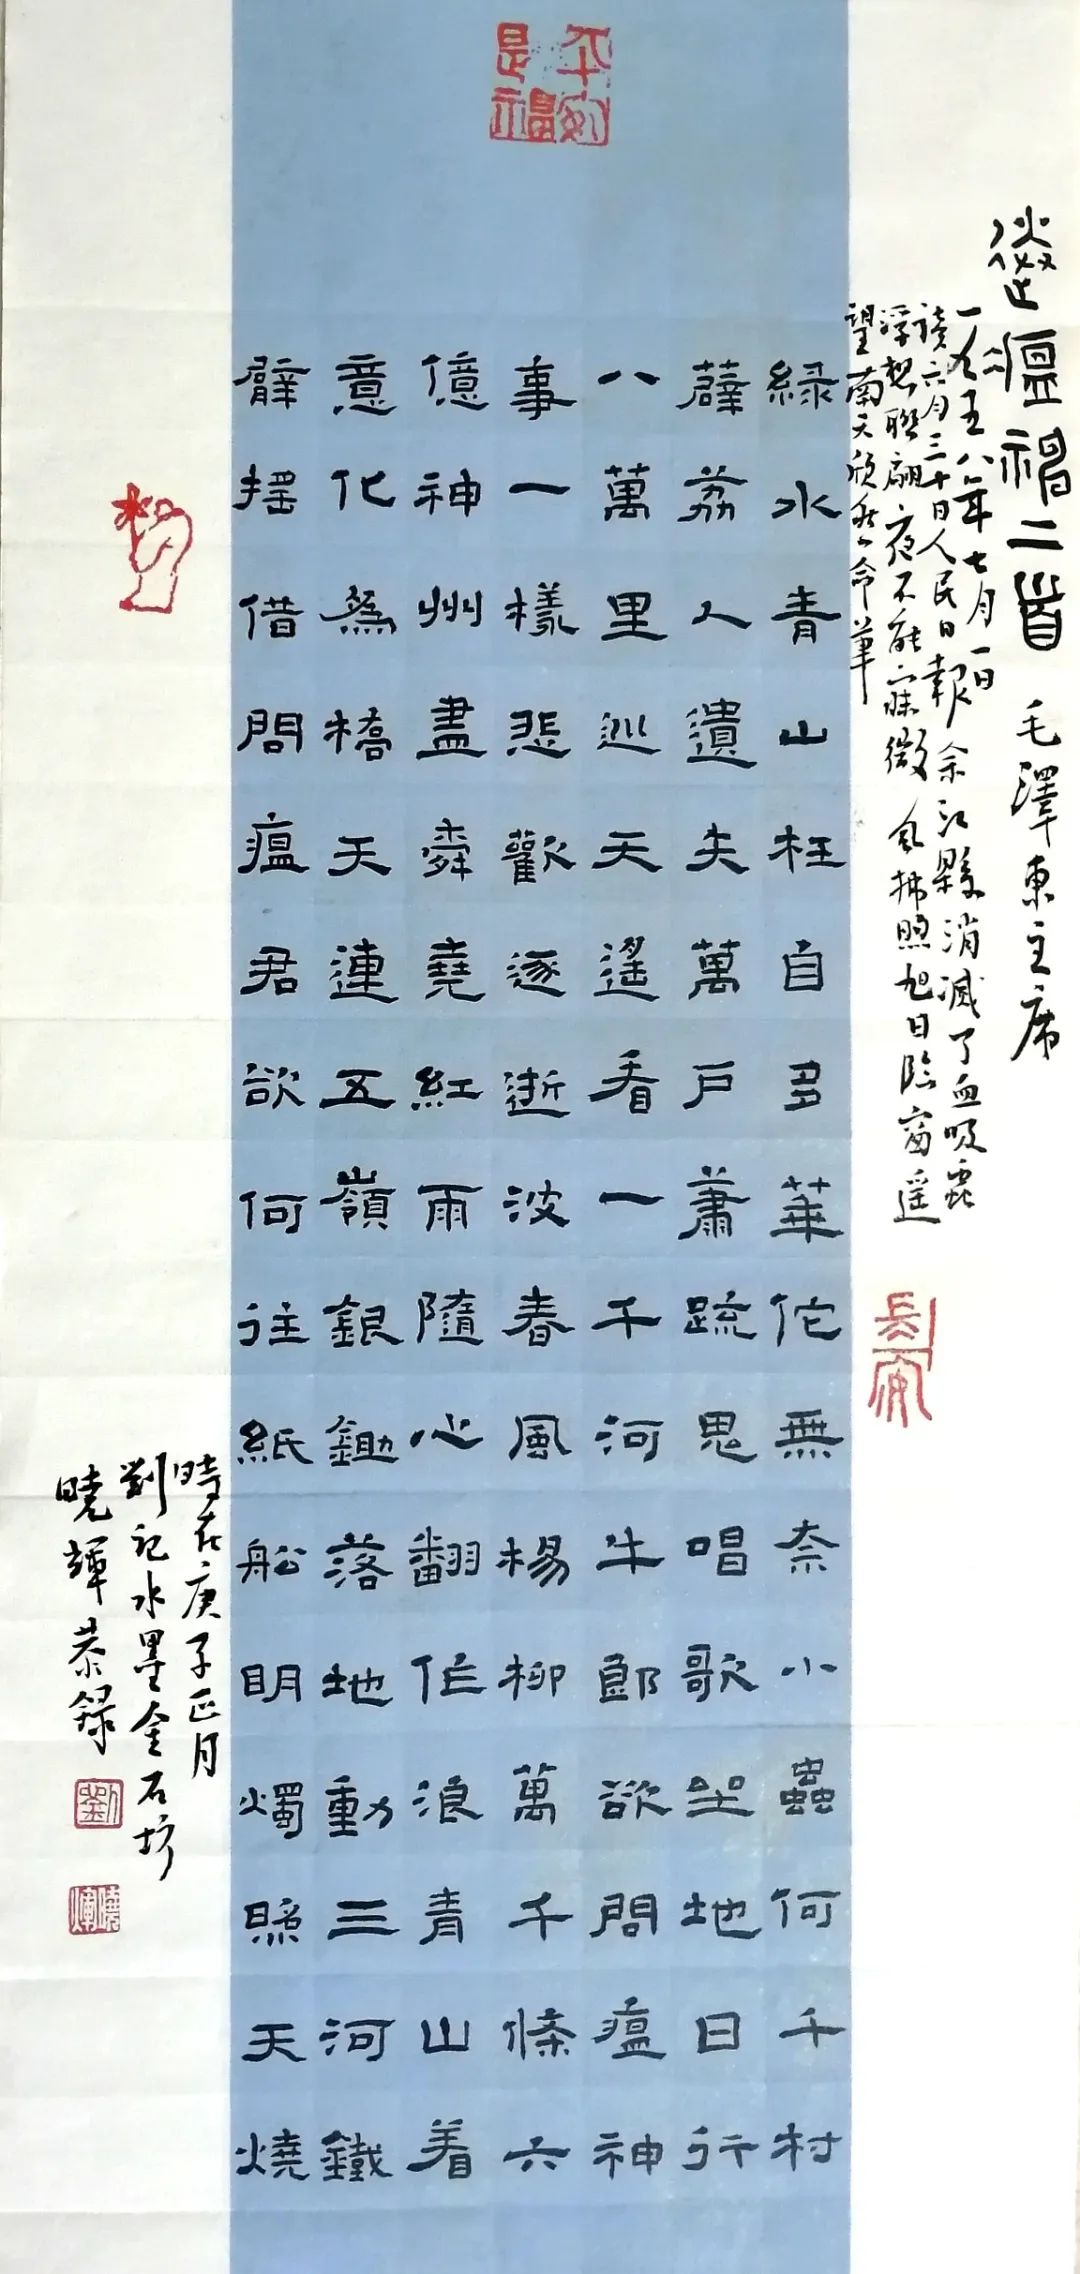 平安是福
送瘟神二首 毛澤東主席
一九五八年七月一日
讀六月三十日人民日報余江縣消滅了血吸蟲
浮想聯翩夜不能寐微風拂照旭日臨窗遥
望南天欣然命筆
緑水青山枉自多華佗無奈小蟲何千村
薜荔人遺矢萬戶蕭疏鬼唱歌坐地日行
八萬里巡天遥看一千河牛郎欲問瘟神
事一樣悲歡逐逝波春風楊柳萬千條六
億神州盡舜堯紅雨隨心翻作浪青山着
意化為橋天連五嶺銀鋤落地動三河鐵
臂摇借問瘟君欲何往紙船明燭照天燒
時在庚子正月
劉記水墨金石坊
曉輝恭録
劉
曉輝